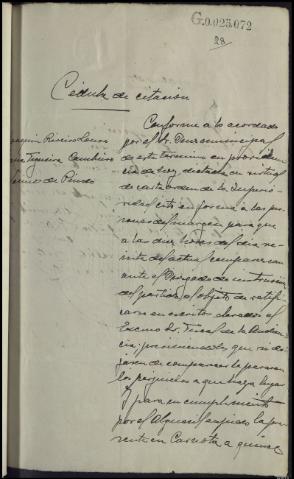 G.0.025.072
28
Cédula de citación
Conforme á lo acordado
por el Sr. Juez municipal
de este término en providen
cia de hoy, dictada en virtud
de carta orden de la Superio
ridad, cito en forma á las per
sonas del margen para que
á las diez horas del dia
veinte del actual comparezcan
ante el Juzgado de instrucción
del partido, al objeto de ratifi
carse en escrito elevado al
Excmo Sr. Fiscal de la Audien
cia; previniendoles que si de
jasen de comparecer les pararan
los perjuicios a que haya lugar
Y para su cumplimiento
por el Alguacil expido la pre
sente en Carnota a quince